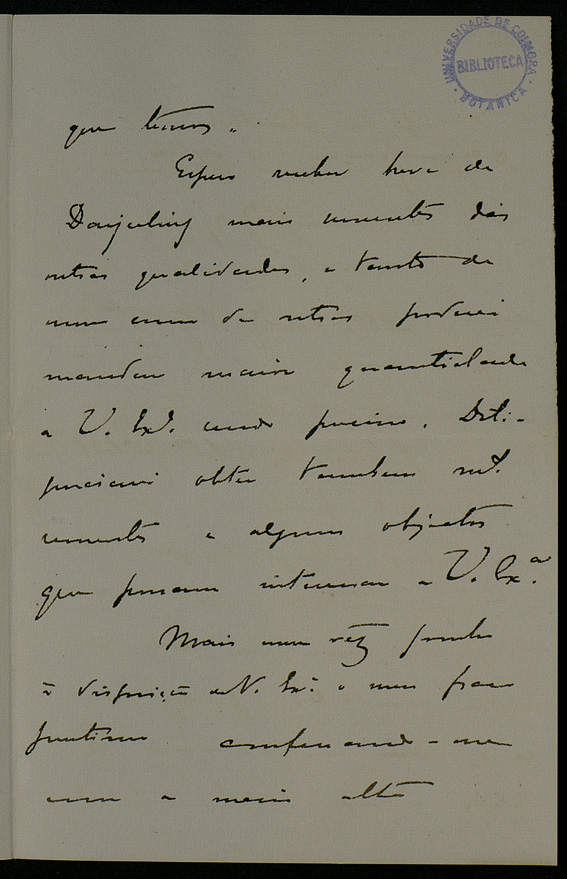 UNIVERSIDADE DE COIMBRA
BIBLIOTECA
BOTANICA
que temos.
Espero receber breve de
Darjeeling mais sementes das
outras qualidades, e tanto de
umas como de outras poderei
mandar maior quantidade
a V. Exª. sendo preciso. Dili-
genciarei obter tambem
sementes e alguns objectos
que possam interessar a V. Exª.
Mais uma vez ponho
á disposição de V. Exª. o meu fraco
prestimo confessando-me
com a mais alta